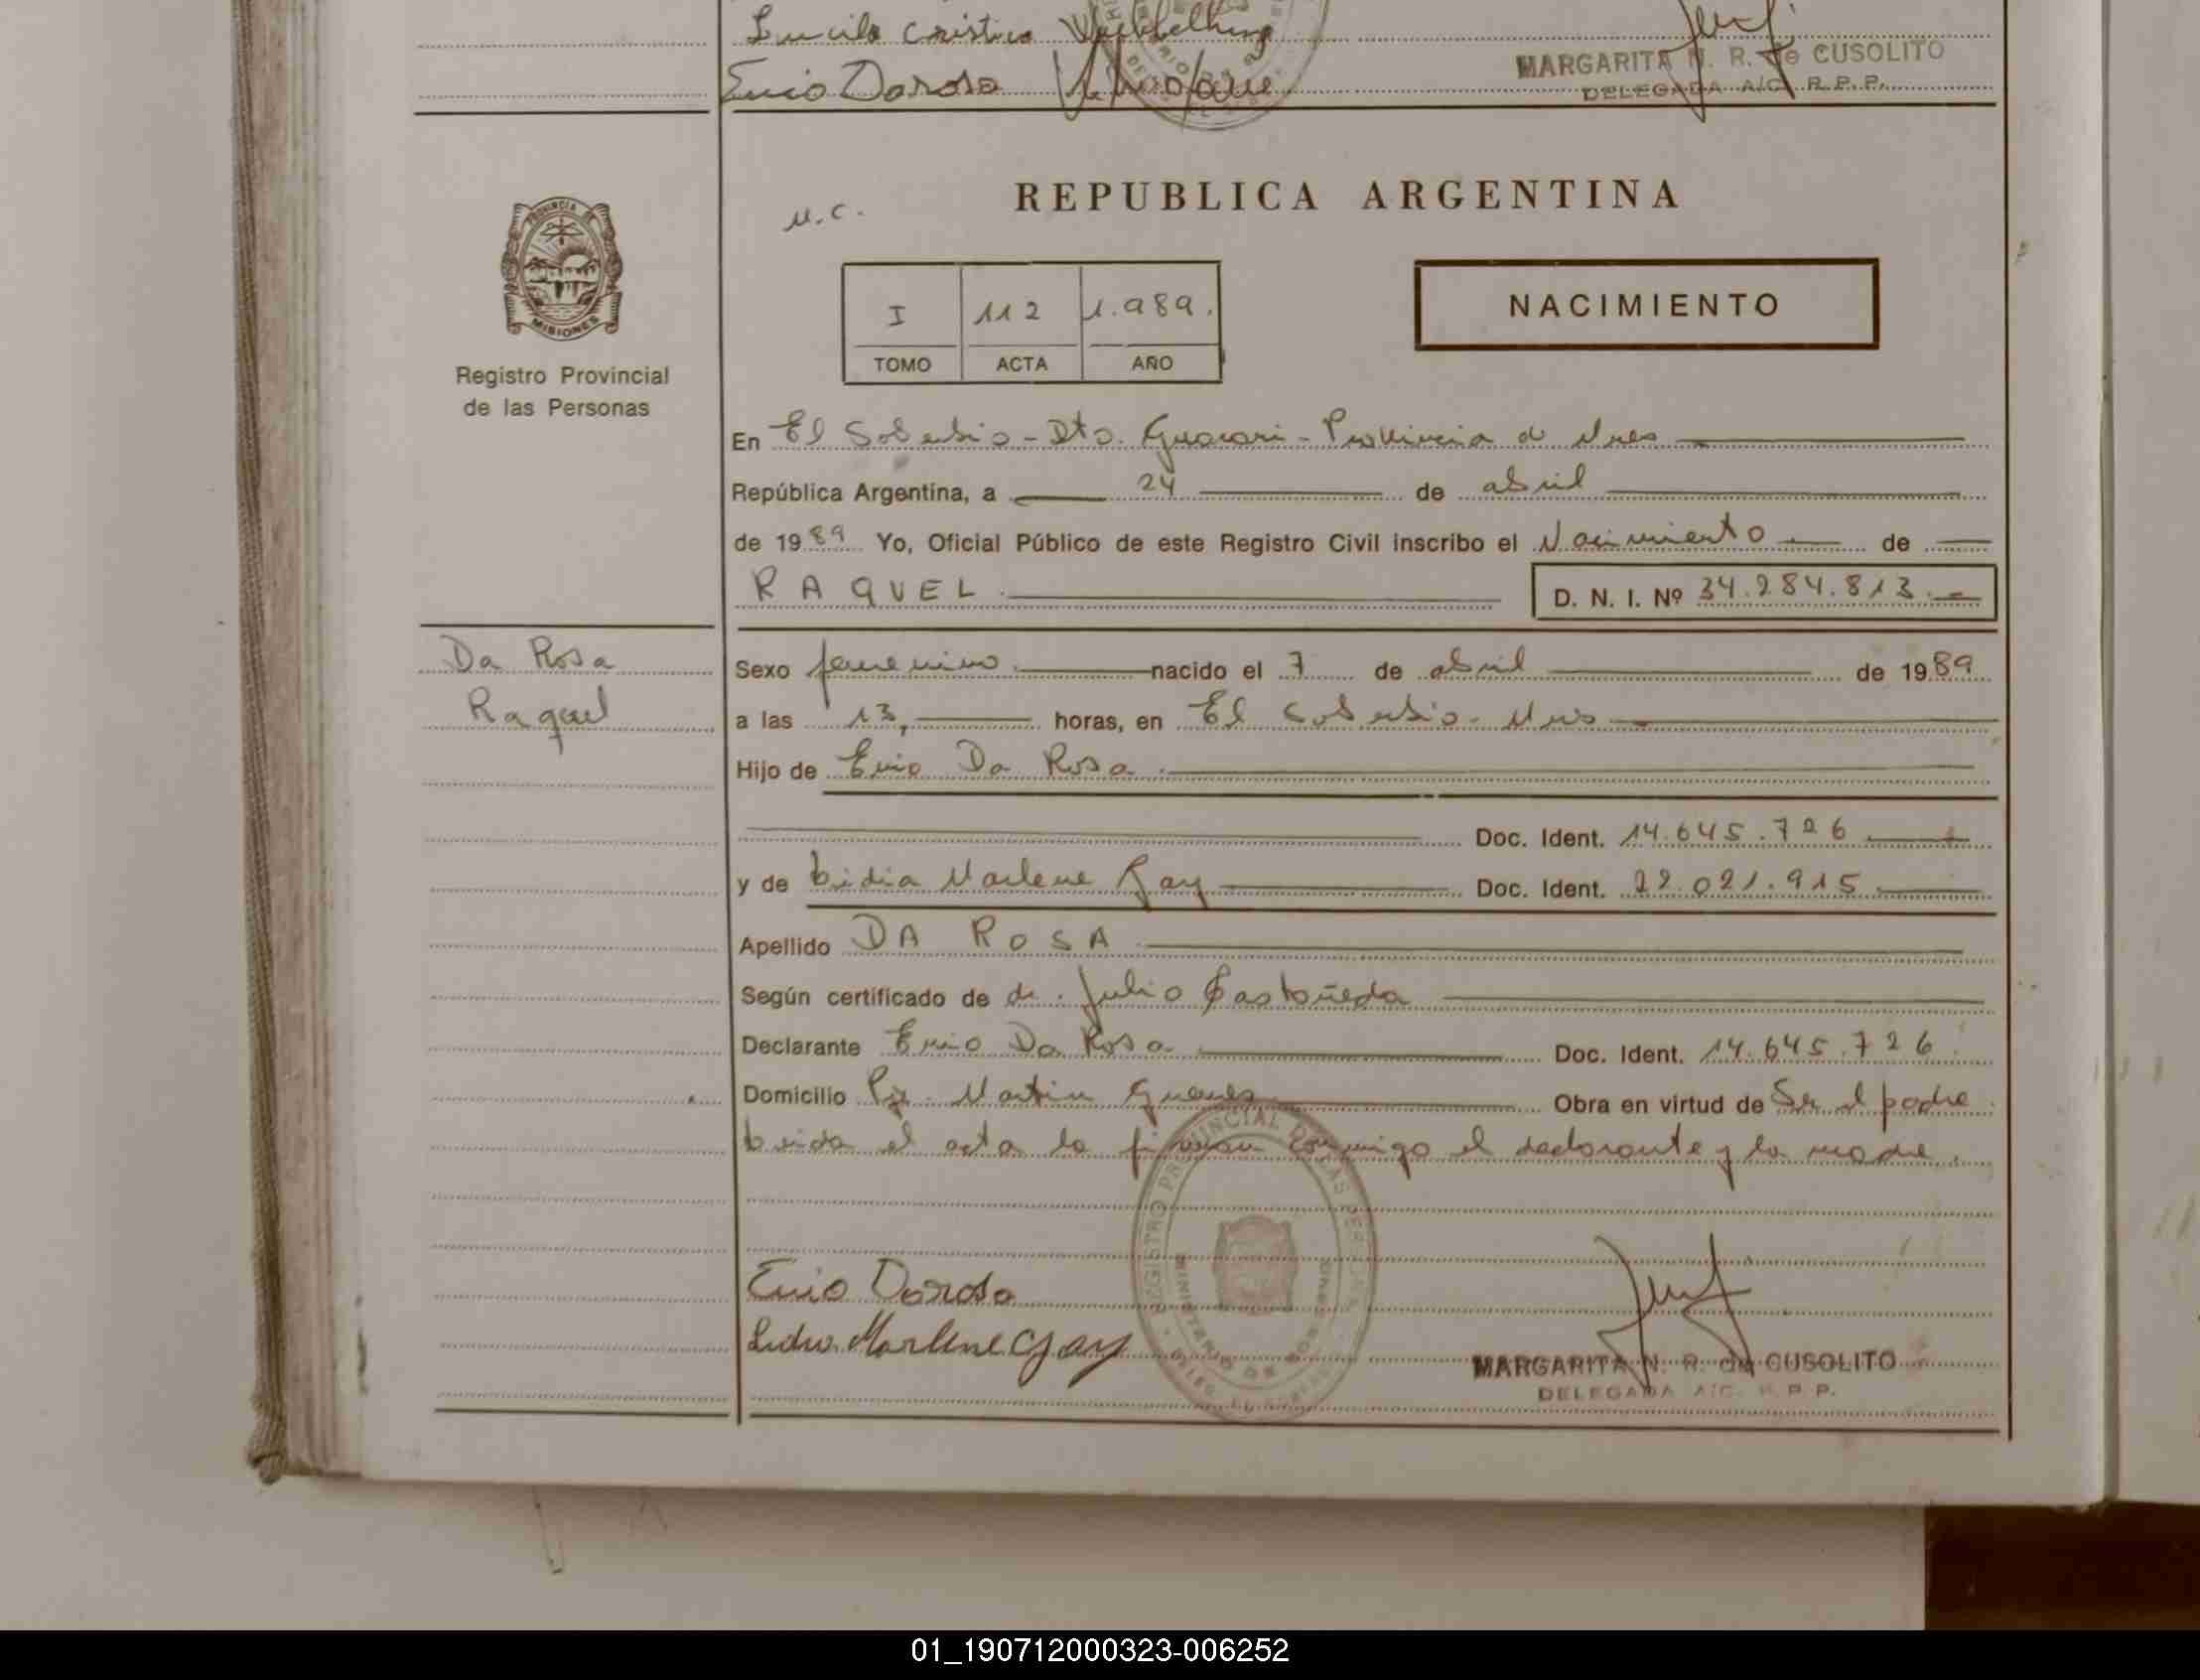 Lucila Cristina
Enio Darosa
MARGARITA N. R. de CUSOLITO
DELEGADA A/C. R.P.P.
REPUBLICA ARGENTINA
M.C.
I 112 1.989.
TOMO ACTA AÑO
NACIMIENTO
PROVINCIA DE
MISIONES
Registro Provincial
de las Personas
En El Soberbio - Dto. Guaraní - Provincia de Mnes
República Argentina, a 24 de abril
de 1989 Yo, Oficial Público de este Registro Civil inscribo el Nacimiento de
RAQUEL D. N. I. Nº 34.284.813.-
Da Rosa
Raquel
Sexo femenino. nacido el 7 de abril de 1989
a las 13, horas, en El Soberbio - Mnes
Hijo de Enio Da Rosa.
Doc. Ident. 14.645.726
y de Lidia Marlene Gay Doc. Ident. 22.021.915
Apellido DA ROSA
Según certificado de dr. Julio Castañeda
Declarante Enio Da Rosa Doc. Ident. 14.645.726.
Domicilio Pje. Martin Guemes Obra en virtud de Ser el padre.
Leida el acta la firman conmigo el declarante y la madre.
REGISTRO PROVINCIAL DE LAS PERSONAS
MINISTERIO DE GOBIERNO
Enio Darosa
Lidia Marlene Gay
MARGARITA N. R. de CUSOLITO
DELEGADA A/C. R.P.P.
01_190712000323-006252